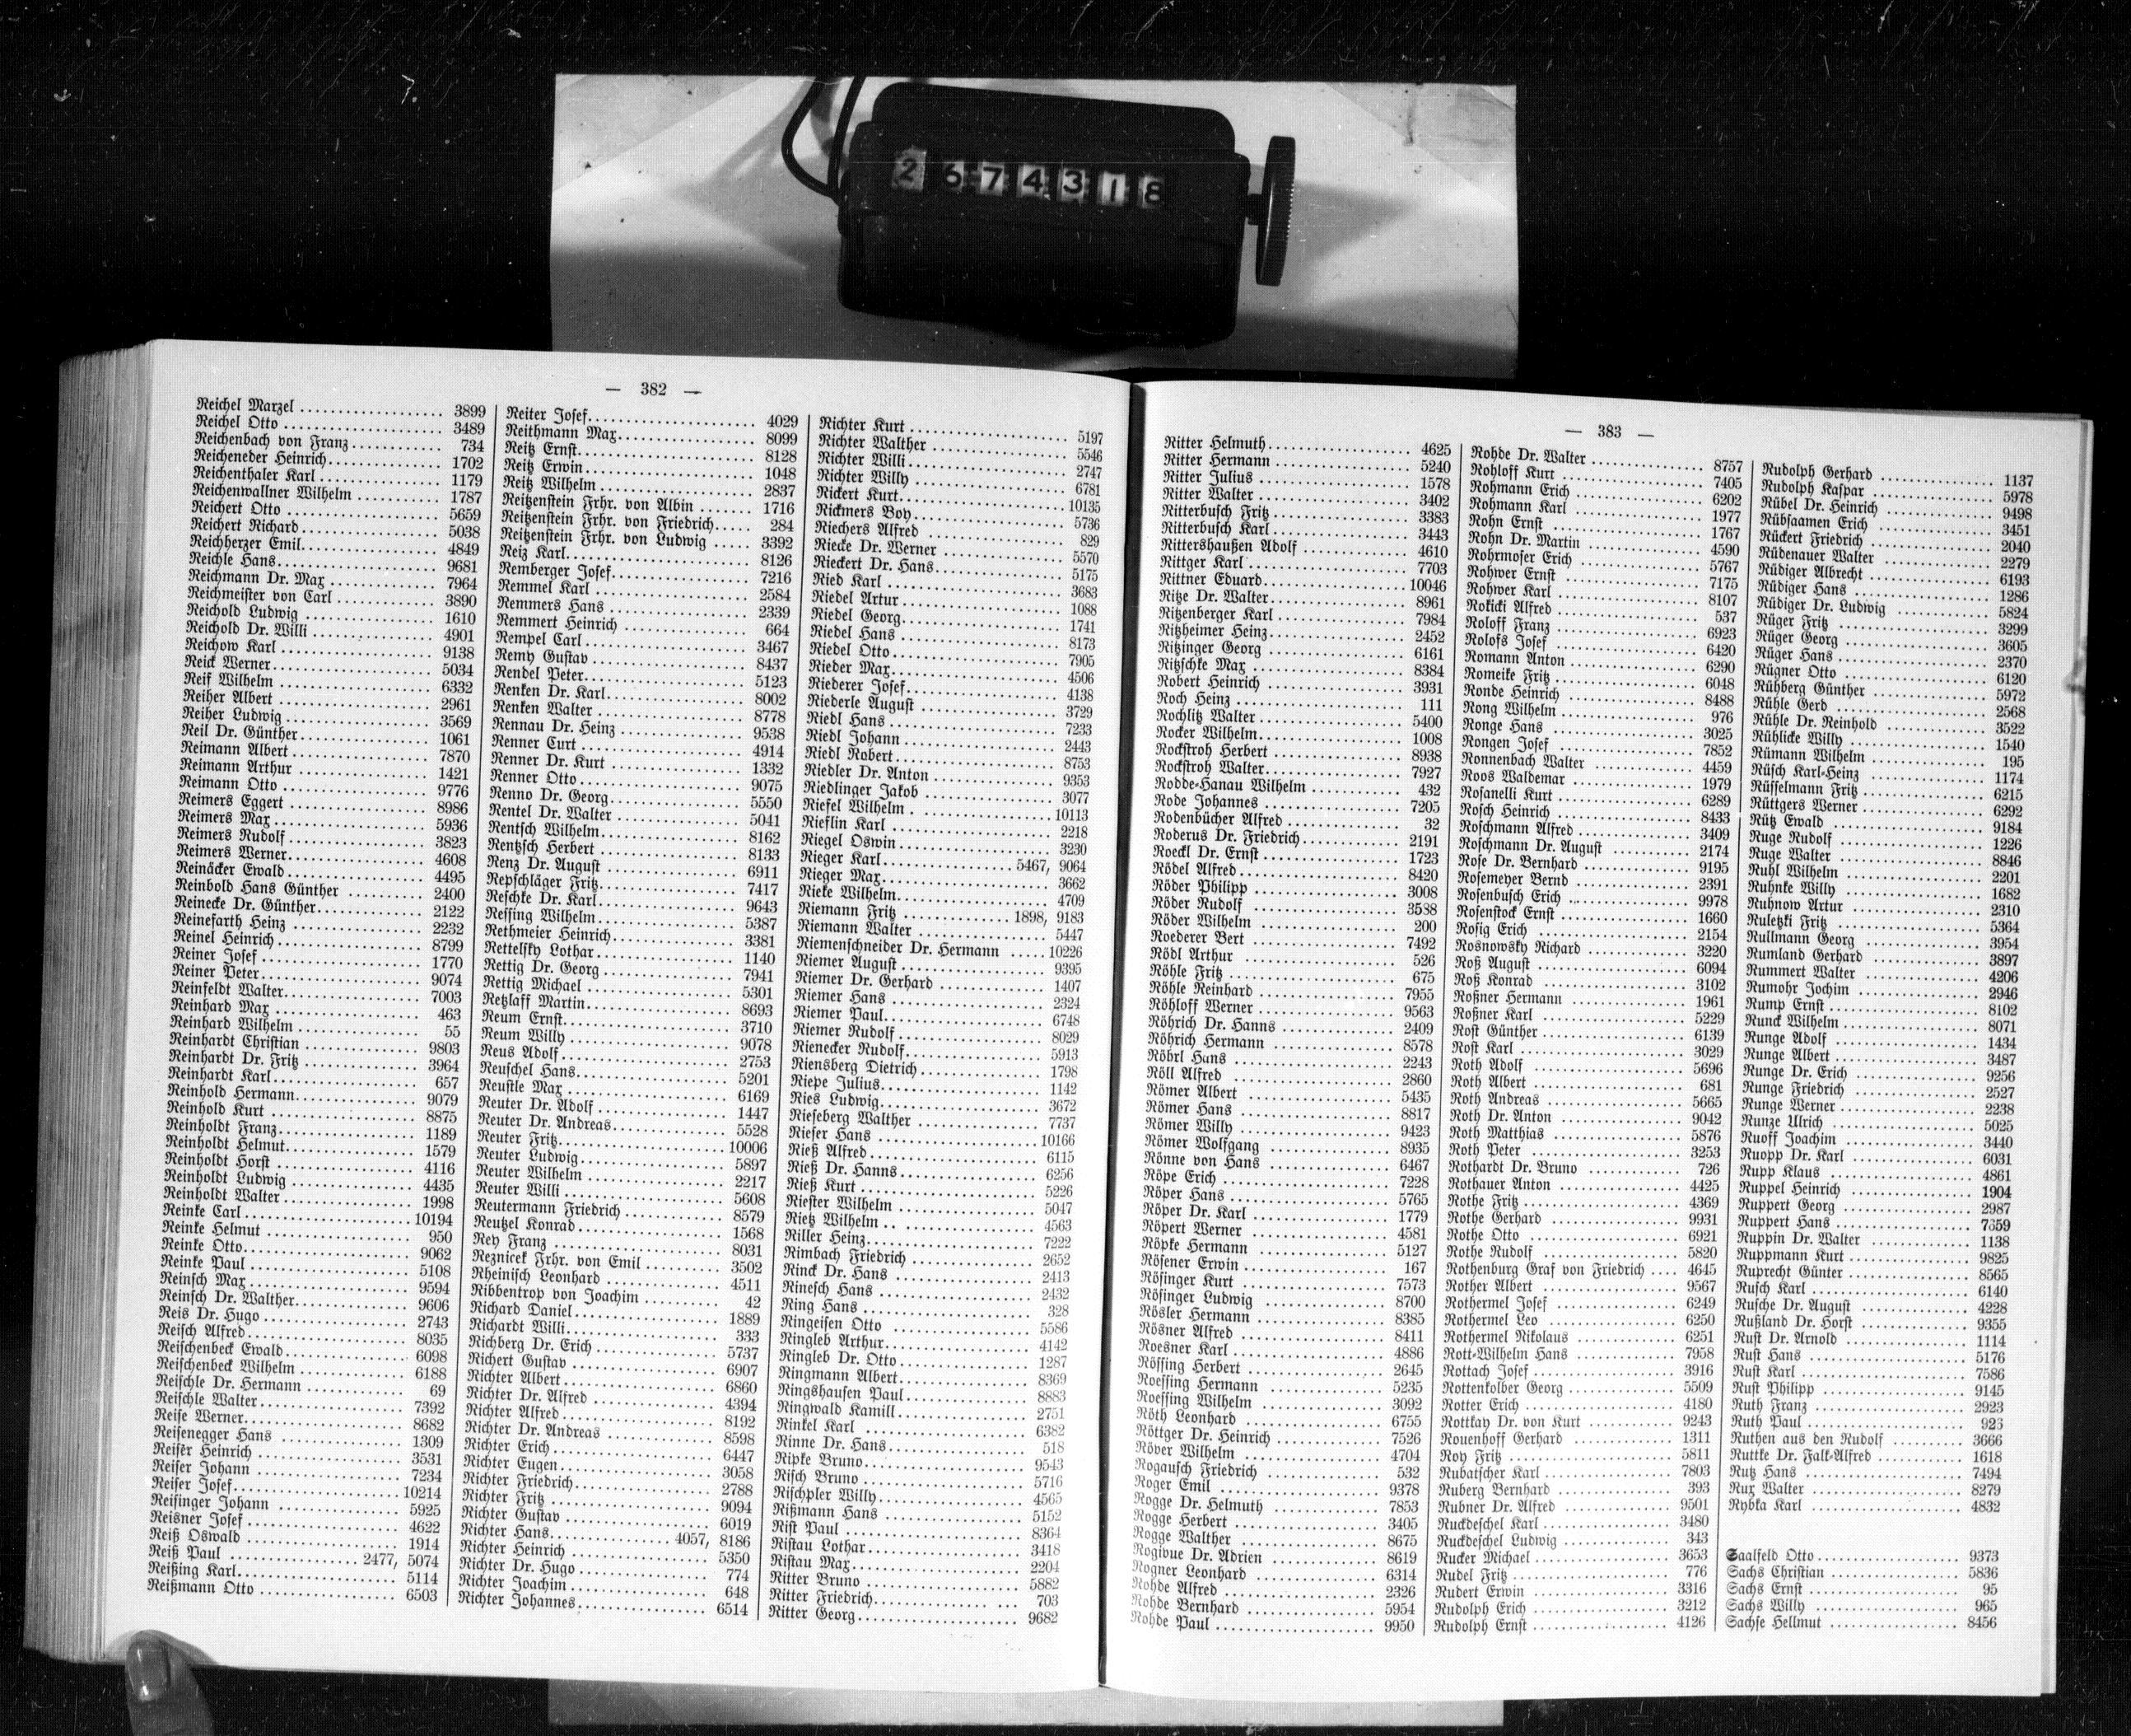 2674318
— 382 —
Reichel Marzel 3899
Reichel Otto 3489
Reichenbach von Franz 734
Reicheneder Heinrich 1702
Reichenthaler Karl 1179
Reichenwallner Wilhelm 1787
Reichert Otto 5659
Reichert Richard 5038
Reichherzer Emil 4849
Reichle Hans 9681
Reichmann Dr. Max 7964
Reichmeister von Carl 3890
Reichold Ludwig 1610
Reichold Dr. Willi 4901
Reichow Karl 9138
Reick Werner 5034
Reif Wilhelm 6332
Reiher Albert 2961
Reiher Ludwig 3569
Reil Dr. Günther 1061
Reimann Albert 7870
Reimann Arthur 1421
Reimann Otto 9776
Reimers Eggert 8986
Reimers Max 5936
Reimers Rudolf 3823
Reimers Werner 4608
Reinäcker Ewald 4495
Reinbold Hans Günther 2400
Reinecke Dr. Günther 2122
Reinefarth Heinz 2232
Reinel Heinrich 8799
Reiner Josef 1770
Reiner Peter 9074
Reinfeldt Walter 7003
Reinhard Max 463
Reinhard Wilhelm 55
Reinhardt Christian 9803
Reinhardt Dr. Fritz 3964
Reinhardt Karl 657
Reinhold Hermann 9079
Reinhold Kurt 8875
Reinholdt Franz 1189
Reinholdt Helmut 1579
Reinholdt Horst 4116
Reinholdt Ludwig 4435
Reinholdt Walter 1998
Reinke Carl 10194
Reinke Helmut 950
Reinke Otto 9062
Reinke Paul 5108
Reinsch Max 9594
Reinsch Dr. Walther 9606
Reis Dr. Hugo 2743
Reisch Alfred 8035
Reischenbeck Ewald 6098
Reischenbeck Wilhelm 6188
Reischle Dr. Hermann 69
Reischle Walter 7392
Reise Werner 8682
Reisenegger Hans 1309
Reiser Heinrich 3531
Reiser Johann 7234
Reiser Josef 10214
Reisinger Johann 5925
Reisner Josef 4622
Reiß Oswald 1914
Reiß Paul 2477, 5074
Reißing Karl 5114
Reißmann Otto 6503
Reiter Josef 4029
Reithmann Max 8099
Reitz Ernst 8128
Reitz Erwin 1048
Reitz Wilhelm 2837
Reitzenstein Frhr. von Albin 1716
Reitzenstein Frhr. von Friedrich 284
Reitzenstein Frhr. von Ludwig 3392
Reiz Karl 8126
Remberger Josef 7216
Remmel Karl 2584
Remmers Hans 2339
Remmert Heinrich 664
Rempel Carl 3467
Remy Gustav 8437
Rendel Peter 5123
Renken Dr. Karl 8002
Renken Walter 8778
Rennau Dr. Heinz 9538
Renner Curt 4914
Renner Dr. Kurt 1332
Renner Otto 9075
Renno Dr. Georg 5550
Rentel Dr. Walter 5041
Rentsch Wilhelm 8162
Rentzsch Herbert 8133
Renz Dr. August 6911
Repschläger Fritz 7417
Reschke Dr. Karl 9643
Ressing Wilhelm 5387
Rethmeier Heinrich 3381
Rettelsky Lothar 1140
Rettig Dr. Georg 7941
Rettig Michael 5301
Retzlaff Martin 8693
Reum Ernst 3710
Reum Willy 9078
Reus Adolf 2753
Reuschel Hans 5201
Reustle Max 6169
Reuter Dr. Adolf 1447
Reuter Dr. Andreas 5528
Reuter Fritz 10006
Reuter Ludwig 5897
Reuter Wilhelm 2217
Reuter Willi 5608
Reutermann Friedrich 8579
Reutzel Konrad 1568
Rey Franz 8031
Reznicek Frhr. von Emil 3502
Rheinisch Leonhard 4511
Ribbentrop von Joachim 42
Richard Daniel 1889
Richardt Willi 333
Richberg Dr. Erich 5737
Richert Gustav 6907
Richter Albert 6860
Richter Dr. Alfred 4394
Richter Alfred 8192
Richter Dr. Andreas 8598
Richter Erich 6447
Richter Eugen 3058
Richter Friedrich 2788
Richter Fritz 9094
Richter Gustav 6019
Richter Hans 4057, 8186
Richter Heinrich 5350
Richter Dr. Hugo 774
Richter Joachim 648
Richter Johannes 6514
Richter Kurt 5197
Richter Walther 5546
Richter Willi 2747
Richter Willy 6781
Rickert Kurt 10135
Rickmers Boy 5736
Riechers Alfred 829
Riecke Dr. Werner 5570
Rieckert Dr. Hans 5175
Ried Karl 3683
Riedel Artur 1088
Riedel Georg 1741
Riedel Hans 8173
Riedel Otto 7905
Rieder Max 4506
Riederer Josef 4138
Riederle August 3729
Riedl Hans 7233
Riedl Johann 2443
Riedl Robert 8753
Riedler Dr. Anton 9353
Riedlinger Jakob 3077
Riefel Wilhelm 10113
Rieflin Karl 2218
Riegel Oswin 3230
Rieger Karl 5467, 9064
Rieger Max 3662
Rieke Wilhelm 4709
Riemann Fritz 1898, 9183
Riemann Walter 5447
Riemenschneider Dr. Hermann 10226
Riemer August 9395
Riemer Dr. Gerhard 1407
Riemer Hans 2324
Riemer Paul 6748
Riemer Rudolf 8029
Rienecker Rudolf 5913
Riensberg Dietrich 1798
Riepe Julius 1142
Ries Ludwig 3672
Rieseberg Walther 7737
Rieser Hans 10166
Rieß Alfred 6115
Rieß Dr. Hanns 6256
Rieß Kurt 5226
Riester Wilhelm 5047
Rietz Wilhelm 4563
Riller Heinz 7222
Rimbach Friedrich 2652
Rinck Dr. Hans 2413
Rinesch Hans 2432
Ring Hans 328
Ringeisen Otto 5586
Ringleb Arthur 4142
Ringleb Dr. Otto 1287
Ringmann Albert 8369
Ringshausen Paul 8883
Ringwald Kamill 2751
Rinkel Karl 6382
Rinne Dr. Hans 518
Ripke Bruno 9543
Risch Bruno 5716
Rischpler Willy 4565
Rißmann Hans 5152
Rist Paul 8364
Ristau Lothar 3418
Ristau Max 2204
Ritter Bruno 5882
Ritter Friedrich 703
Ritter Georg 9682
— 383 —
Ritter Helmuth 4625
Ritter Hermann 5240
Ritter Julius 1578
Ritter Walter 3402
Ritterbusch Fritz 3383
Ritterbusch Karl 3443
Rittershaußen Adolf 4610
Rittger Karl 7703
Rittner Eduard 10046
Ritze Dr. Walter 8961
Ritzenberger Karl 7984
Ritzheimer Heinz 2452
Ritzinger Georg 6161
Ritzschke Max 8384
Robert Heinrich 3931
Roch Heinz 111
Rochlitz Walter 5400
Rocker Wilhelm 1008
Rockstroh Herbert 8938
Rockstroh Walter 7927
Rodde-Hanau Wilhelm 432
Rode Johannes 7205
Rodenbücher Alfred 32
Roderus Dr. Friedrich 2191
Roeckl Dr. Ernst 1723
Rödel Alfred 8420
Röder Philipp 3008
Röder Rudolf 3538
Röder Wilhelm 200
Roederer Bert 7492
Rödl Arthur 526
Röhle Fritz 675
Röhle Reinhard 7955
Röhloff Werner 9563
Röhrich Dr. Hanns 2409
Röhrich Hermann 8578
Röhrl Hans 2243
Röll Alfred 2860
Römer Albert 5435
Römer Hans 8817
Römer Willy 9423
Römer Wolfgang 8935
Rönne von Hans 6467
Röpe Erich 7228
Röper Hans 5765
Röper Dr. Karl 1779
Röpert Werner 4581
Röpke Hermann 5127
Rösener Erwin 167
Rösinger Kurt 7573
Rösinger Ludwig 8700
Rösler Hermann 8385
Rösner Alfred 8411
Roesner Karl 4886
Rössing Herbert 2645
Roessing Hermann 5235
Roessing Wilhelm 3092
Röth Leonhard 6755
Röttger Dr. Heinrich 7526
Röver Wilhelm 4704
Rogausch Friedrich 532
Roger Emil 9378
Rogge Dr. Helmuth 7853
Rogge Herbert 3405
Rogge Walther 8675
Rogivue Dr. Adrien 8619
Rogner Leonhard 6314
Rohde Alfred 2326
Rohde Bernhard 5954
Rohde Paul 9950
Rohde Dr. Walter 8757
Rohloff Kurt 7405
Rohmann Erich 6202
Rohmann Karl 1977
Rohn Ernst 1767
Rohn Dr. Martin 4590
Rohrmoser Erich 5767
Rohwer Ernst 7175
Rohwer Karl 8107
Rokicki Alfred 537
Roloff Franz 6923
Rolofs Josef 6420
Romann Anton 6290
Romeike Fritz 6048
Ronde Heinrich 8488
Rong Wilhelm 976
Ronge Hans 3025
Rongen Josef 7852
Ronnenbach Walter 4459
Roos Waldemar 1979
Rosanelli Kurt 6289
Rosch Heinrich 8433
Roschmann Alfred 3409
Roschmann Dr. August 2174
Rose Dr. Bernhard 9195
Rosemeyer Bernd 2391
Rosenbusch Erich 9978
Rosenstock Ernst 1660
Rosig Erich 2154
Rosnowsky Richard 3220
Roß August 6094
Roß Konrad 3102
Roßner Hermann 1961
Roßner Karl 5229
Rost Günther 6139
Rost Karl 3029
Roth Adolf 5696
Roth Albert 681
Roth Andreas 5665
Roth Dr. Anton 9042
Roth Matthias 5876
Roth Peter 3253
Rothardt Dr. Bruno 726
Rothauer Anton 4425
Rothe Fritz 4369
Rothe Gerhard 9931
Rothe Otto 6921
Rothe Rudolf 5820
Rothenburg Graf von Friedrich 4645
Rother Albert 9567
Rothermel Josef 6249
Rothermel Leo 6250
Rothermel Nikolaus 6251
Rott-Wilhelm Hans 7958
Rottach Josef 3916
Rottenkolber Georg 5509
Rotter Erich 4180
Rottkay Dr. von Kurt 9243
Rouenhoff Gerhard 1311
Roy Fritz 5811
Rubatscher Karl 7803
Ruberg Bernhard 393
Rubner Dr. Alfred 9501
Ruckdeschel Karl 3480
Ruckdeschel Ludwig 343
Rucker Michael 3653
Rudel Fritz 776
Rudert Erwin 3316
Rudolph Erich 3212
Rudolph Ernst 4126
Rudolph Gerhard 1137
Rudolph Kaspar 5978
Rübel Dr. Heinrich 9498
Rübsaamen Erich 3451
Rückert Friedrich 2040
Rüdenauer Walter 2279
Rüdiger Albrecht 6193
Rüdiger Hans 1286
Rüdiger Dr. Ludwig 5824
Rüger Fritz 3299
Rüger Georg 3605
Rüger Hans 2370
Rügner Otto 6120
Rühberg Günther 5972
Rühle Gerd 2568
Rühle Dr. Reinhold 3522
Rühlicke Willy 1540
Rümann Wilhelm 195
Rüsch Karl-Heinz 1174
Rüsselmann Fritz 6215
Rüttgers Werner 6292
Rütz Ewald 9184
Ruge Rudolf 1226
Ruge Walter 8846
Ruhl Wilhelm 2201
Ruhnke Willy 1682
Ruhnow Artur 2310
Ruletzki Fritz 5364
Rullmann Georg 3954
Rumland Gerhard 3897
Rummert Walter 4206
Rumohr Jochim 2946
Rump Ernst 8102
Runck Wilhelm 8071
Runge Adolf 1434
Runge Albert 3487
Runge Dr. Erich 9256
Runge Friedrich 2527
Runge Werner 2238
Runze Ulrich 5025
Ruoff Joachim 3440
Ruopp Dr. Karl 6031
Rupp Klaus 4861
Ruppel Heinrich 1904
Ruppert Georg 2987
Ruppert Hans 7359
Ruppin Dr. Walter 1138
Ruppmann Kurt 9825
Ruprecht Günter 8565
Rusch Karl 6140
Rusche Dr. August 4228
Rußland Dr. Horst 9355
Rust Dr. Arnold 1114
Rust Hans 5176
Rust Karl 7586
Rust Philipp 9145
Ruth Franz 2923
Ruth Paul 923
Ruthen aus den Rudolf 3666
Ruttke Dr. Falk-Alfred 1618
Rutz Hans 7494
Rux Walter 8279
Rybka Karl 4832
Saalfeld Otto 9373
Sachs Christian 5836
Sachs Ernst 95
Sachs Willy 965
Sachse Hellmut 8456